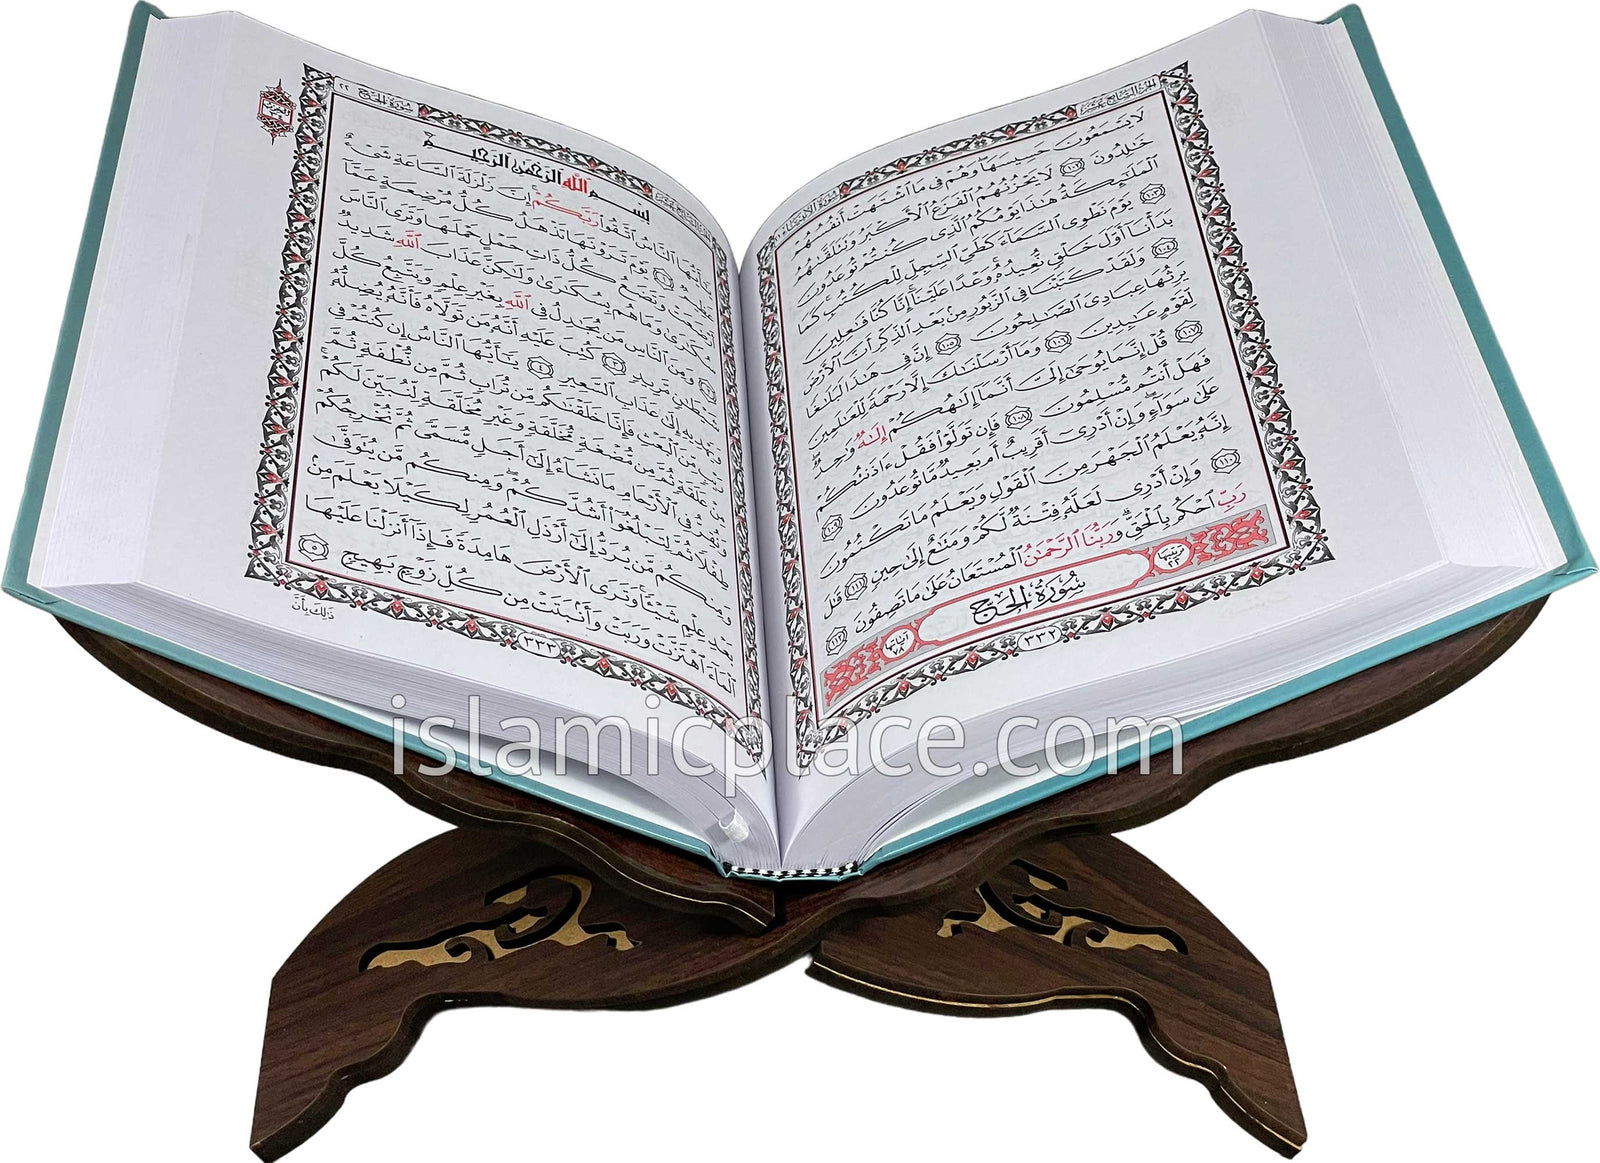 الجزء السابع عشر سورة الأنبياء ٢١
لَا يَسْمَعُونَ حَسِيسَهَا وَهُمْ فِي مَا ٱشْتَهَتْ أَنفُسُهُمْ
خَٰلِدُونَ ١٠٢ لَا يَحْزُنُهُمُ ٱلْفَزَعُ ٱلْأَكْبَرُ وَتَتَلَقَّىٰهُمُ
ٱلْمَلَٰٓئِكَةُ هَٰذَا يَوْمُكُمُ ٱلَّذِي كُنتُمْ تُوعَدُونَ
١٠٣ يَوْمَ نَطْوِي ٱلسَّمَآءَ كَطَيِّ ٱلسِّجِلِّ لِلْكُتُبِ كَمَا
بَدَأْنَآ أَوَّلَ خَلْقٍ نُّعِيدُهُۥ وَعْدًا عَلَيْنَآ إِنَّا كُنَّا فَٰعِلِينَ
١٠٤ وَلَقَدْ كَتَبْنَا فِي ٱلزَّبُورِ مِنۢ بَعْدِ ٱلذِّكْرِ أَنَّ ٱلْأَرْضَ
يَرِثُهَا عِبَادِيَ ٱلصَّٰلِحُونَ ١٠٥ إِنَّ فِي هَٰذَا لَبَلَٰغًا
لِّقَوْمٍ عَٰبِدِينَ ١٠٦ وَمَآ أَرْسَلْنَٰكَ إِلَّا رَحْمَةً لِّلْعَٰلَمِينَ
١٠٧ قُلْ إِنَّمَا يُوحَىٰٓ إِلَيَّ أَنَّمَآ إِلَٰهُكُمْ إِلَٰهٌ وَٰحِدٌ
فَهَلْ أَنتُم مُّسْلِمُونَ ١٠٨ فَإِن تَوَلَّوْا۟ فَقُلْ ءَاذَنتُكُمْ
عَلَىٰ سَوَآءٍ وَإِنْ أَدْرِيٓ أَقَرِيبٌ أَم بَعِيدٌ مَّا تُوعَدُونَ ١٠٩
إِنَّهُۥ يَعْلَمُ ٱلْجَهْرَ مِنَ ٱلْقَوْلِ وَيَعْلَمُ مَا تَكْتُمُونَ
١١٠ وَإِنْ أَدْرِي لَعَلَّهُۥ فِتْنَةٌ لَّكُمْ وَمَتَٰعٌ إِلَىٰ حِينٍ ١١١ قَٰلَ
رَبِّ ٱحْكُم بِٱلْحَقِّ وَرَبُّنَا ٱلرَّحْمَٰنُ ٱلْمُسْتَعَانُ عَلَىٰ مَا تَصِفُونَ ١١٢
ترتيبها ٢٢ سُورَةُ ٱلْحَجِّ آياتها ٧٨
٣٣٢
الجزء السابع عشر سورة الحج ٢٢
بِسْمِ ٱللَّهِ ٱلرَّحْمَٰنِ ٱلرَّحِيمِ
يَٰٓأَيُّهَا ٱلنَّاسُ ٱتَّقُوا۟ رَبَّكُمْ إِنَّ زَلْزَلَةَ ٱلسَّاعَةِ شَيْءٌ
عَظِيمٌ ١ يَوْمَ تَرَوْنَهَا تَذْهَلُ كُلُّ مُرْضِعَةٍ عَمَّآ
أَرْضَعَتْ وَتَضَعُ كُلُّ ذَاتِ حَمْلٍ حَمْلَهَا وَتَرَى ٱلنَّاسَ
سُكَٰرَىٰ وَمَا هُم بِسُكَٰرَىٰ وَلَٰكِنَّ عَذَابَ ٱللَّهِ شَدِيدٌ
٢ وَمِنَ ٱلنَّاسِ مَن يُجَٰدِلُ فِي ٱللَّهِ بِغَيْرِ عِلْمٍ وَيَتَّبِعُ كُلَّ
شَيْطَٰنٍ مَّرِيدٍ ٣ كُتِبَ عَلَيْهِ أَنَّهُۥ مَن تَوَلَّاهُ فَأَنَّهُۥ يُضِلُّهُۥ
وَيَهْدِيهِ إِلَىٰ عَذَابِ ٱلسَّعِيرِ ٤ يَٰٓأَيُّهَا ٱلنَّاسُ إِن كُنتُمْ فِي
رَيْبٍ مِّنَ ٱلْبَعْثِ فَإِنَّا خَلَقْنَٰكُم مِّن تُرَابٍ ثُمَّ مِن نُّطْفَةٍ ثُمَّ
مِنْ عَلَقَةٍ ثُمَّ مِن مُّضْغَةٍ مُّخَلَّقَةٍ وَغَيْرِ مُخَلَّقَةٍ لِّنُبَيِّنَ لَكُمْ
وَنُقِرُّ فِي ٱلْأَرْحَامِ مَا نَشَآءُ إِلَىٰٓ أَجَلٍ مُّسَمًّى ثُمَّ نُخْرِجُكُمْ
طِفْلًا ثُمَّ لِتَبْلُغُوٓا۟ أَشُدَّكُمْ وَمِنكُم مَّن يُتَوَفَّىٰ
وَمِنكُم مَّن يُرَدُّ إِلَىٰٓ أَرْذَلِ ٱلْعُمُرِ لِكَيْلَا يَعْلَمَ مِنۢ
بَعْدِ عِلْمٍ شَيْـًٔا وَتَرَى ٱلْأَرْضَ هَامِدَةً فَإِذَآ أَنزَلْنَا عَلَيْهَا
ٱلْمَآءَ ٱهْتَزَّتْ وَرَبَتْ وَأَنۢبَتَتْ مِن كُلِّ زَوْجٍۭ بَهِيجٍ ٥
٣٣٣
ذَٰلِكَ بِأَنَّ
islamicplace.com